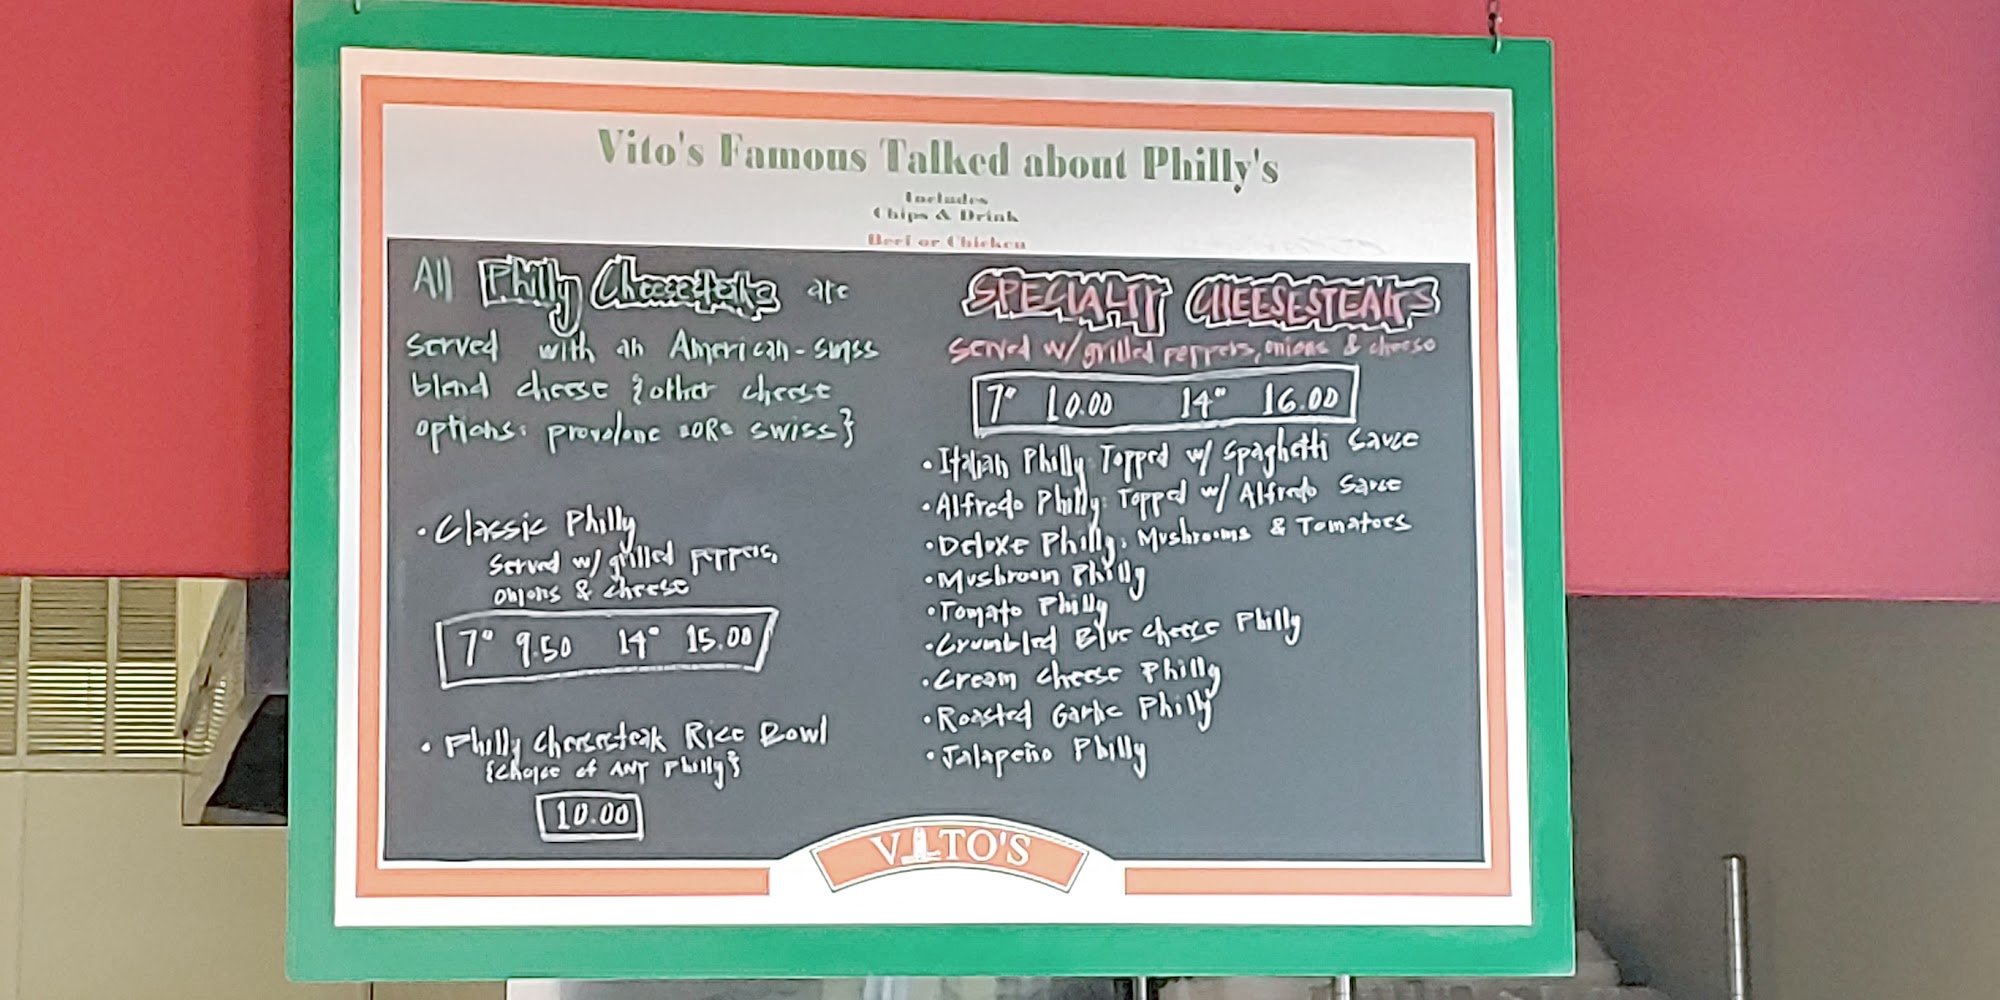 Vito's Famous Talked about Philly's
Includes
Chips & Drink
Beef or Chicken
All Philly Cheesesteaks are
served with an American-swiss
blend cheese {other cheese
options: provolone "OR" swiss}
• Classic Philly
served w/ grilled peppers,
onions & cheese
7" 9.50 14" 15.00
• Philly Cheesesteak Rice Bowl
{choice of ANY Philly}
10.00
SPECIALTY CHEESESTEAKS
served w/ grilled peppers, onions & cheese
7" 10.00 14" 16.00
• Italian Philly: Topped w/ Spaghetti Sauce
• Alfredo Philly: Topped w/ Alfredo Sauce
• Deluxe Philly: Mushrooms & Tomatoes
• Mushroom Philly
• Tomato Philly
• Crumbled Blue cheese Philly
• Cream cheese Philly
• Roasted Garlic Philly
• Jalapeño Philly
VITO'S